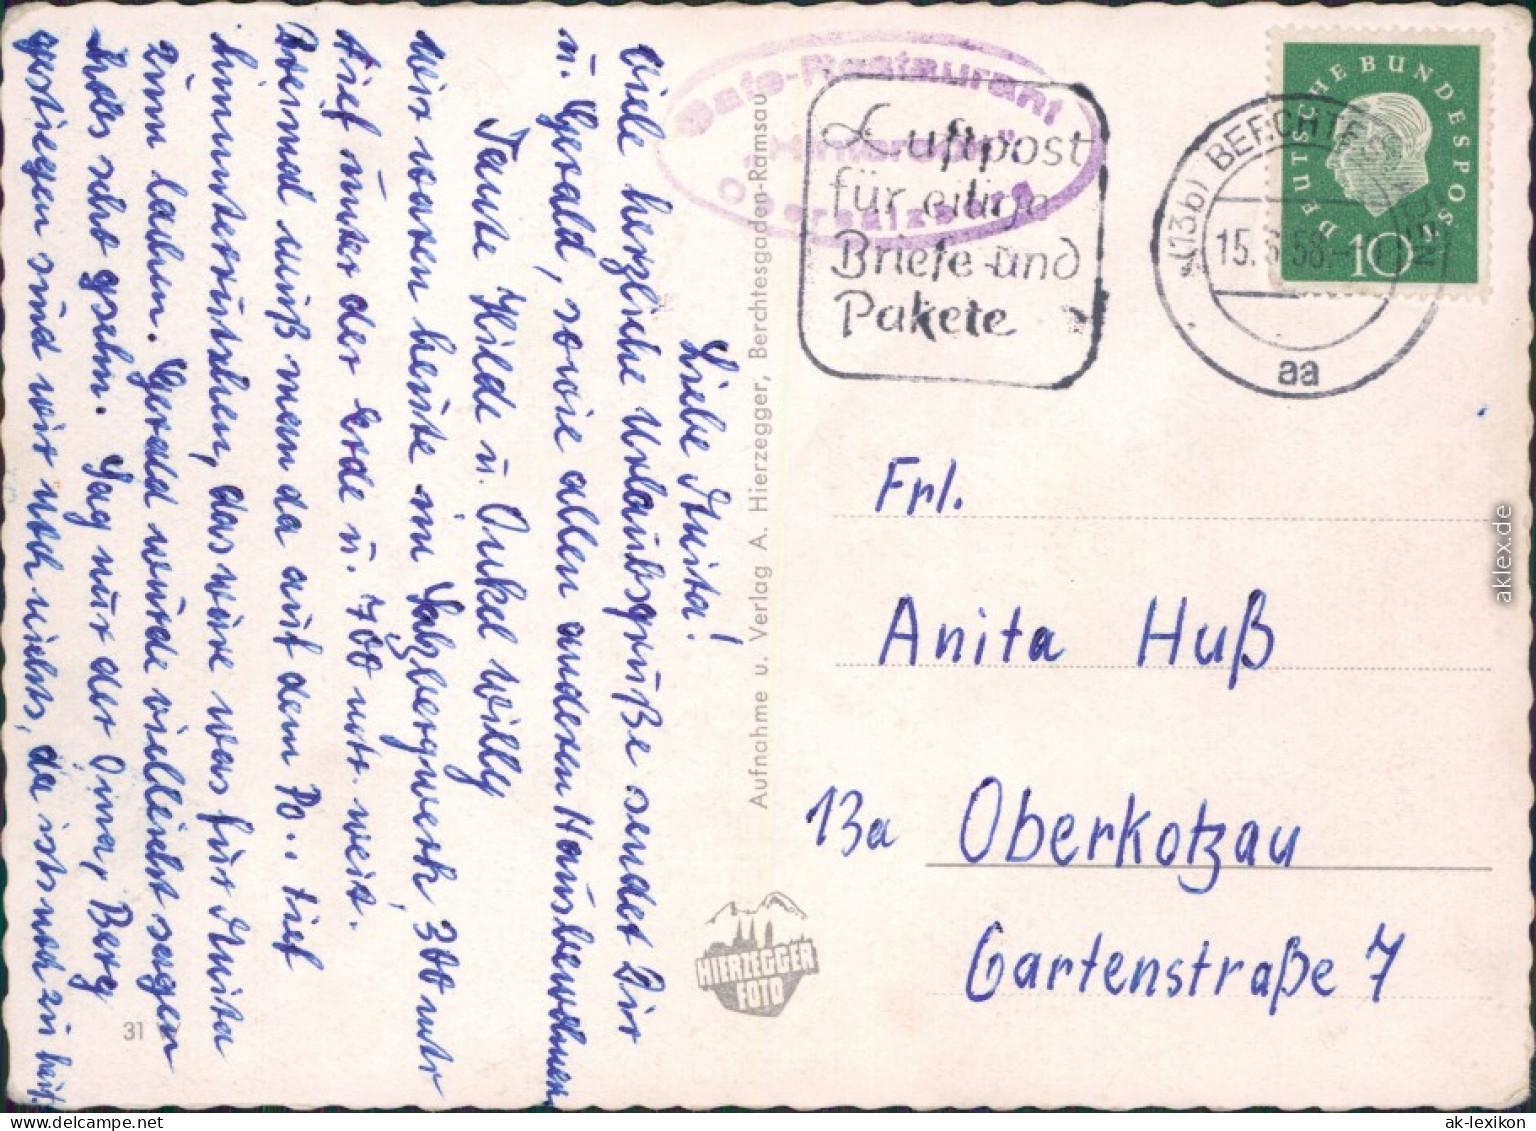 Liebe Anita!
Viele herzliche Urlaubsgrüße sendet Dir
u. Gerald, sowie allen anderen Hausbewohnern
Tante Hilde u. Onkel Willy
Wir waren heute im Salzbergwerk, 300 mtr
tief unter der Erde u. 700 mtr. weit.
Dreimal muß man da auf dem Po.. tief
hinunterrutschen, das wäre was für Anita
zum lachen. Gerald würde vielleicht sagen
gsehn. Sag nur der Oma, Berg
gestiegen sind wir noch nichts, da ists noch zu heiß.
31
Aufnahme u. Verlag A. Hierzegger, Berchtesgaden-Ramsau
HIERZEGGER
FOTO
Cafe-Restaurant
Obersalzberg
Luftpost
für eilige
Briefe und
Pakete
(13b) BERCHTESGADEN
15.6.58.-
aa
DEUTSCHE BUNDESPOST
10
Frl.
Anita Huß
13a Oberkotzau
Gartenstraße 7
aklex.de
ak-lexikon
www.delcampe.net